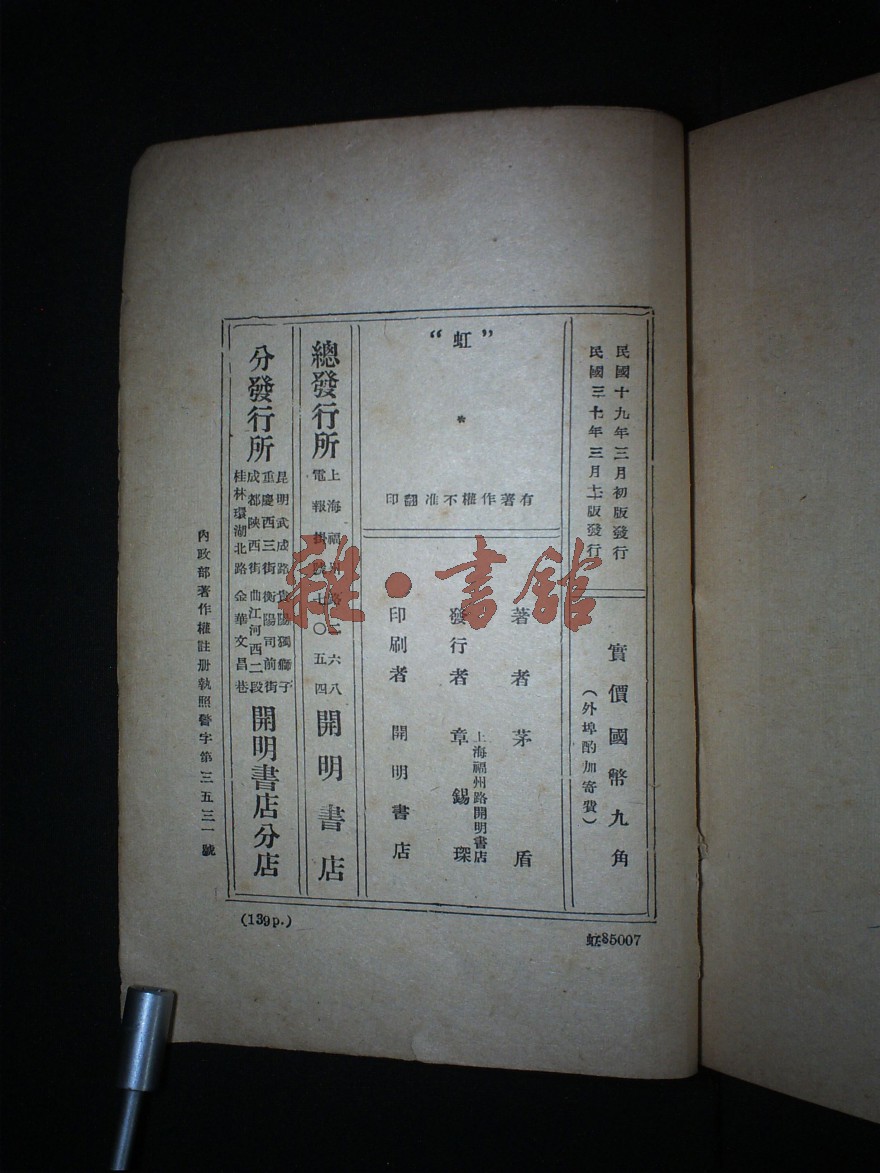 民國十九年三月初版發行
民國三十年三月十一版發行
實價國幣九角
（外埠酌加寄費）
“虹”
*
有著作權不准翻印
著者 茅盾
發行者 章錫琛
上海福州路開明書店
印刷者 開明書店
總發行所
上海福州路二六八
電報掛號七〇五四
開明書店
分發行所
昆明武成路 貴陽獨獅子
重慶西三街 衡陽司前街
成都陝西街 曲江河西二段
桂林環湖北路 金華文昌巷
開明書店分店
內政部著作權註册執照警字第三五三一號
(139p.)
虹85007
雜·書館